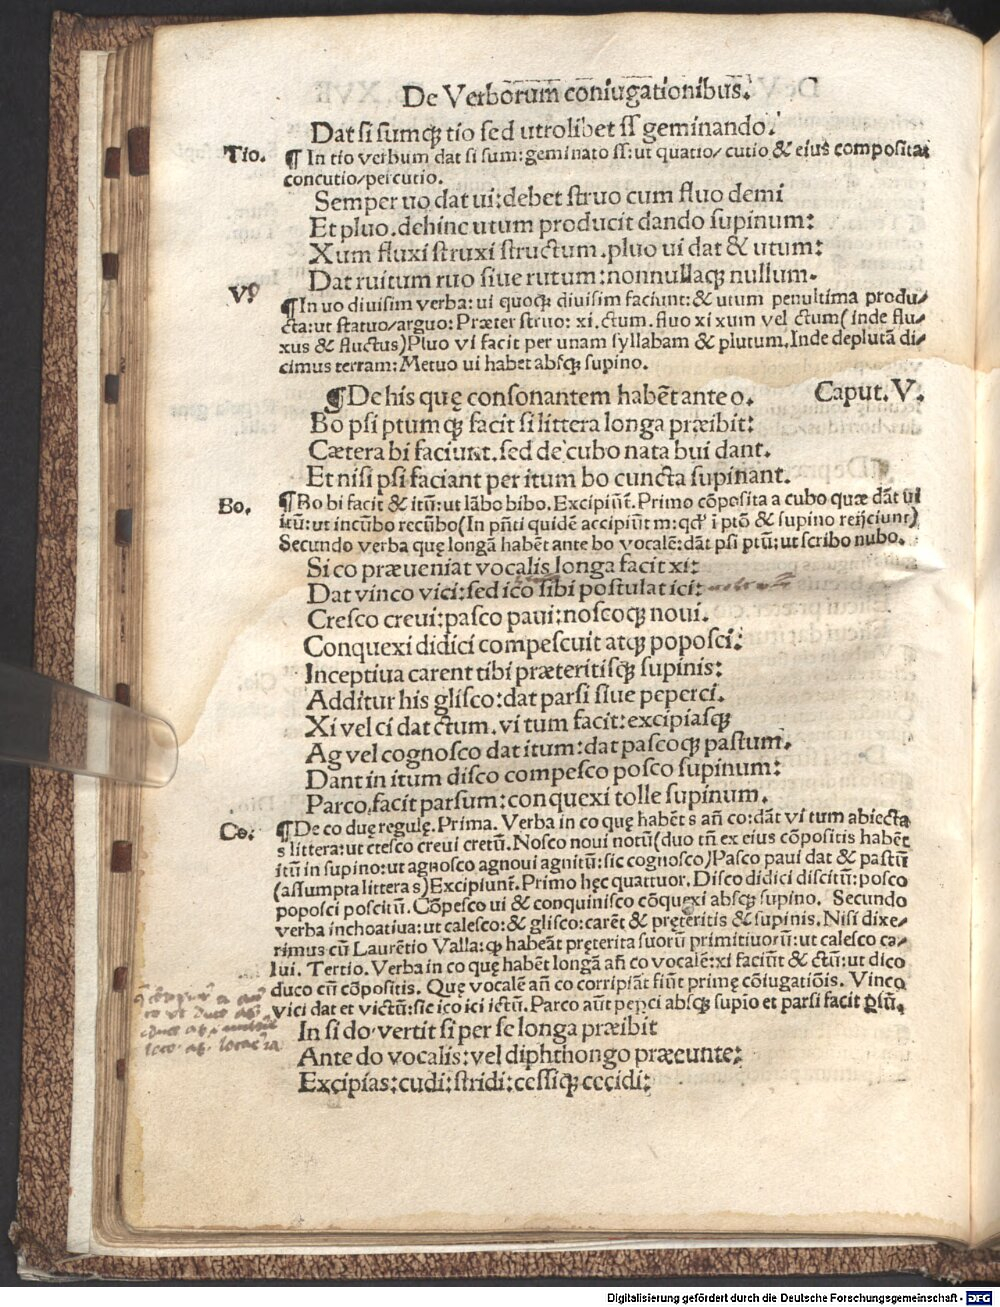 De Verborum coniugationibus.
Dat si sumqꝫ tio sed utrolibet ſſ geminando.
Tio.
¶ In tio verbum dat si sum: geminato ſſ: ut quatio/ cutio & eius composita:
concutio/percutio.
Semper uo dat ui: debet struo cum fluo demi
Et pluo. dehinc utum producit dando supinum:
Xum fluxi struxi structum. pluo ui dat & utum:
Dat ruitum ruo siue rutum: nonnullaqꝫ nullum.
Vo
¶In uo diuisim verba: ui quoqꝫ diuisim faciunt: & utum penultima produ/
cta: ut statuo/arguo: Præter struo: xi. ctum. fluo xi xum vel ctum( inde flu/
xus & fluctus) Pluo vi facit per unam syllabam & plutum. Inde deplutā di/
cimus terram: Metuo ui habet absqꝫ supino.
¶De his quę consonantem habēt ante o. Caput. V.
Bo psi ptumqꝫ facit si littera longa præibit:
Cætera bi faciunt. sed de cubo nata bui dant.
Et nisi psi faciant per itum bo cuncta supinant.
Bo.
¶Bo bi facit & itū: ut lābo bibo. Excipiūt. Primo cōposita a cubo quæ dāt ui
itū: ut incūbo recūbo(In pn̄ti quidē accipiūt m: qd' ī ptō & supino reijciunt)
Secundo verba quę longā habēt ante bo vocalē: dāt psi ptū: ut scribo nubo.
Si co præueniat vocalis longa facit xi:
Dat vinco vici: sed ico sibi postulat ici:
Cresco creui: pasco paui: noscoqꝫ noui.
Conquexi didici compescuit atqꝫ poposci:
Inceptiua carent tibi præteritisqꝫ supinis:
Additur his glisco: dat parsi siue peperci.
Xi vel ci dat ctum. vi tum facit: excipiasqꝫ
Ag vel cognosco dat itum: dat pascoqꝫ pastum.
Dant in itum disco compesco posco supinum:
Parco facit parsum: conquexi tolle supinum.
Co.
¶De co duę regulę. Prima. Verba in co quę habēt s añ co: dāt vi tum abiecta
s littera: ut cresco creui cretū. Nosco noui notū(duo tñ ex eius cōpositis habēt
itū in supino: ut agnosco agnoui agnitū: sic cognosco) Pasco paui dat & pastū
(assumpta littera s) Excipiunt̄. Primo hęc quattuor. Disco didici discitū: posco
poposci poscitū. Cōpesco ui & conquinisco cōquexi absqꝫ supino. Secundo
verba inchoatiua: ut calesco: & glisco: carēt & pręteritis & supinis. Nisi dixe/
rimus cū Laurētio Valla: qꝫ habeāt pręterita suorū primitiuorū: ut calesco ca/
lui. Tertio. Verba in co quę habēt longā añ co vocalē: xi faciūt & ctū: ut dico
duco cū cōpositis. Que vocalē añ co corripiāt fiūt primę cōiugatiōis. Vinco
vici dat et victū: sic ico ici ictū. Parco aūt peꝑci absqꝫ supio et parsi facit ꝑsū.
In si do vertit si per se longa præibit
Ante do vocalis: vel diphthongo præeunte:
Excipias: cudi: stridi: cessiqꝫ cecidi:
Digitalisierung gefördert durch die Deutsche Forschungsgemeinschaft - DFG